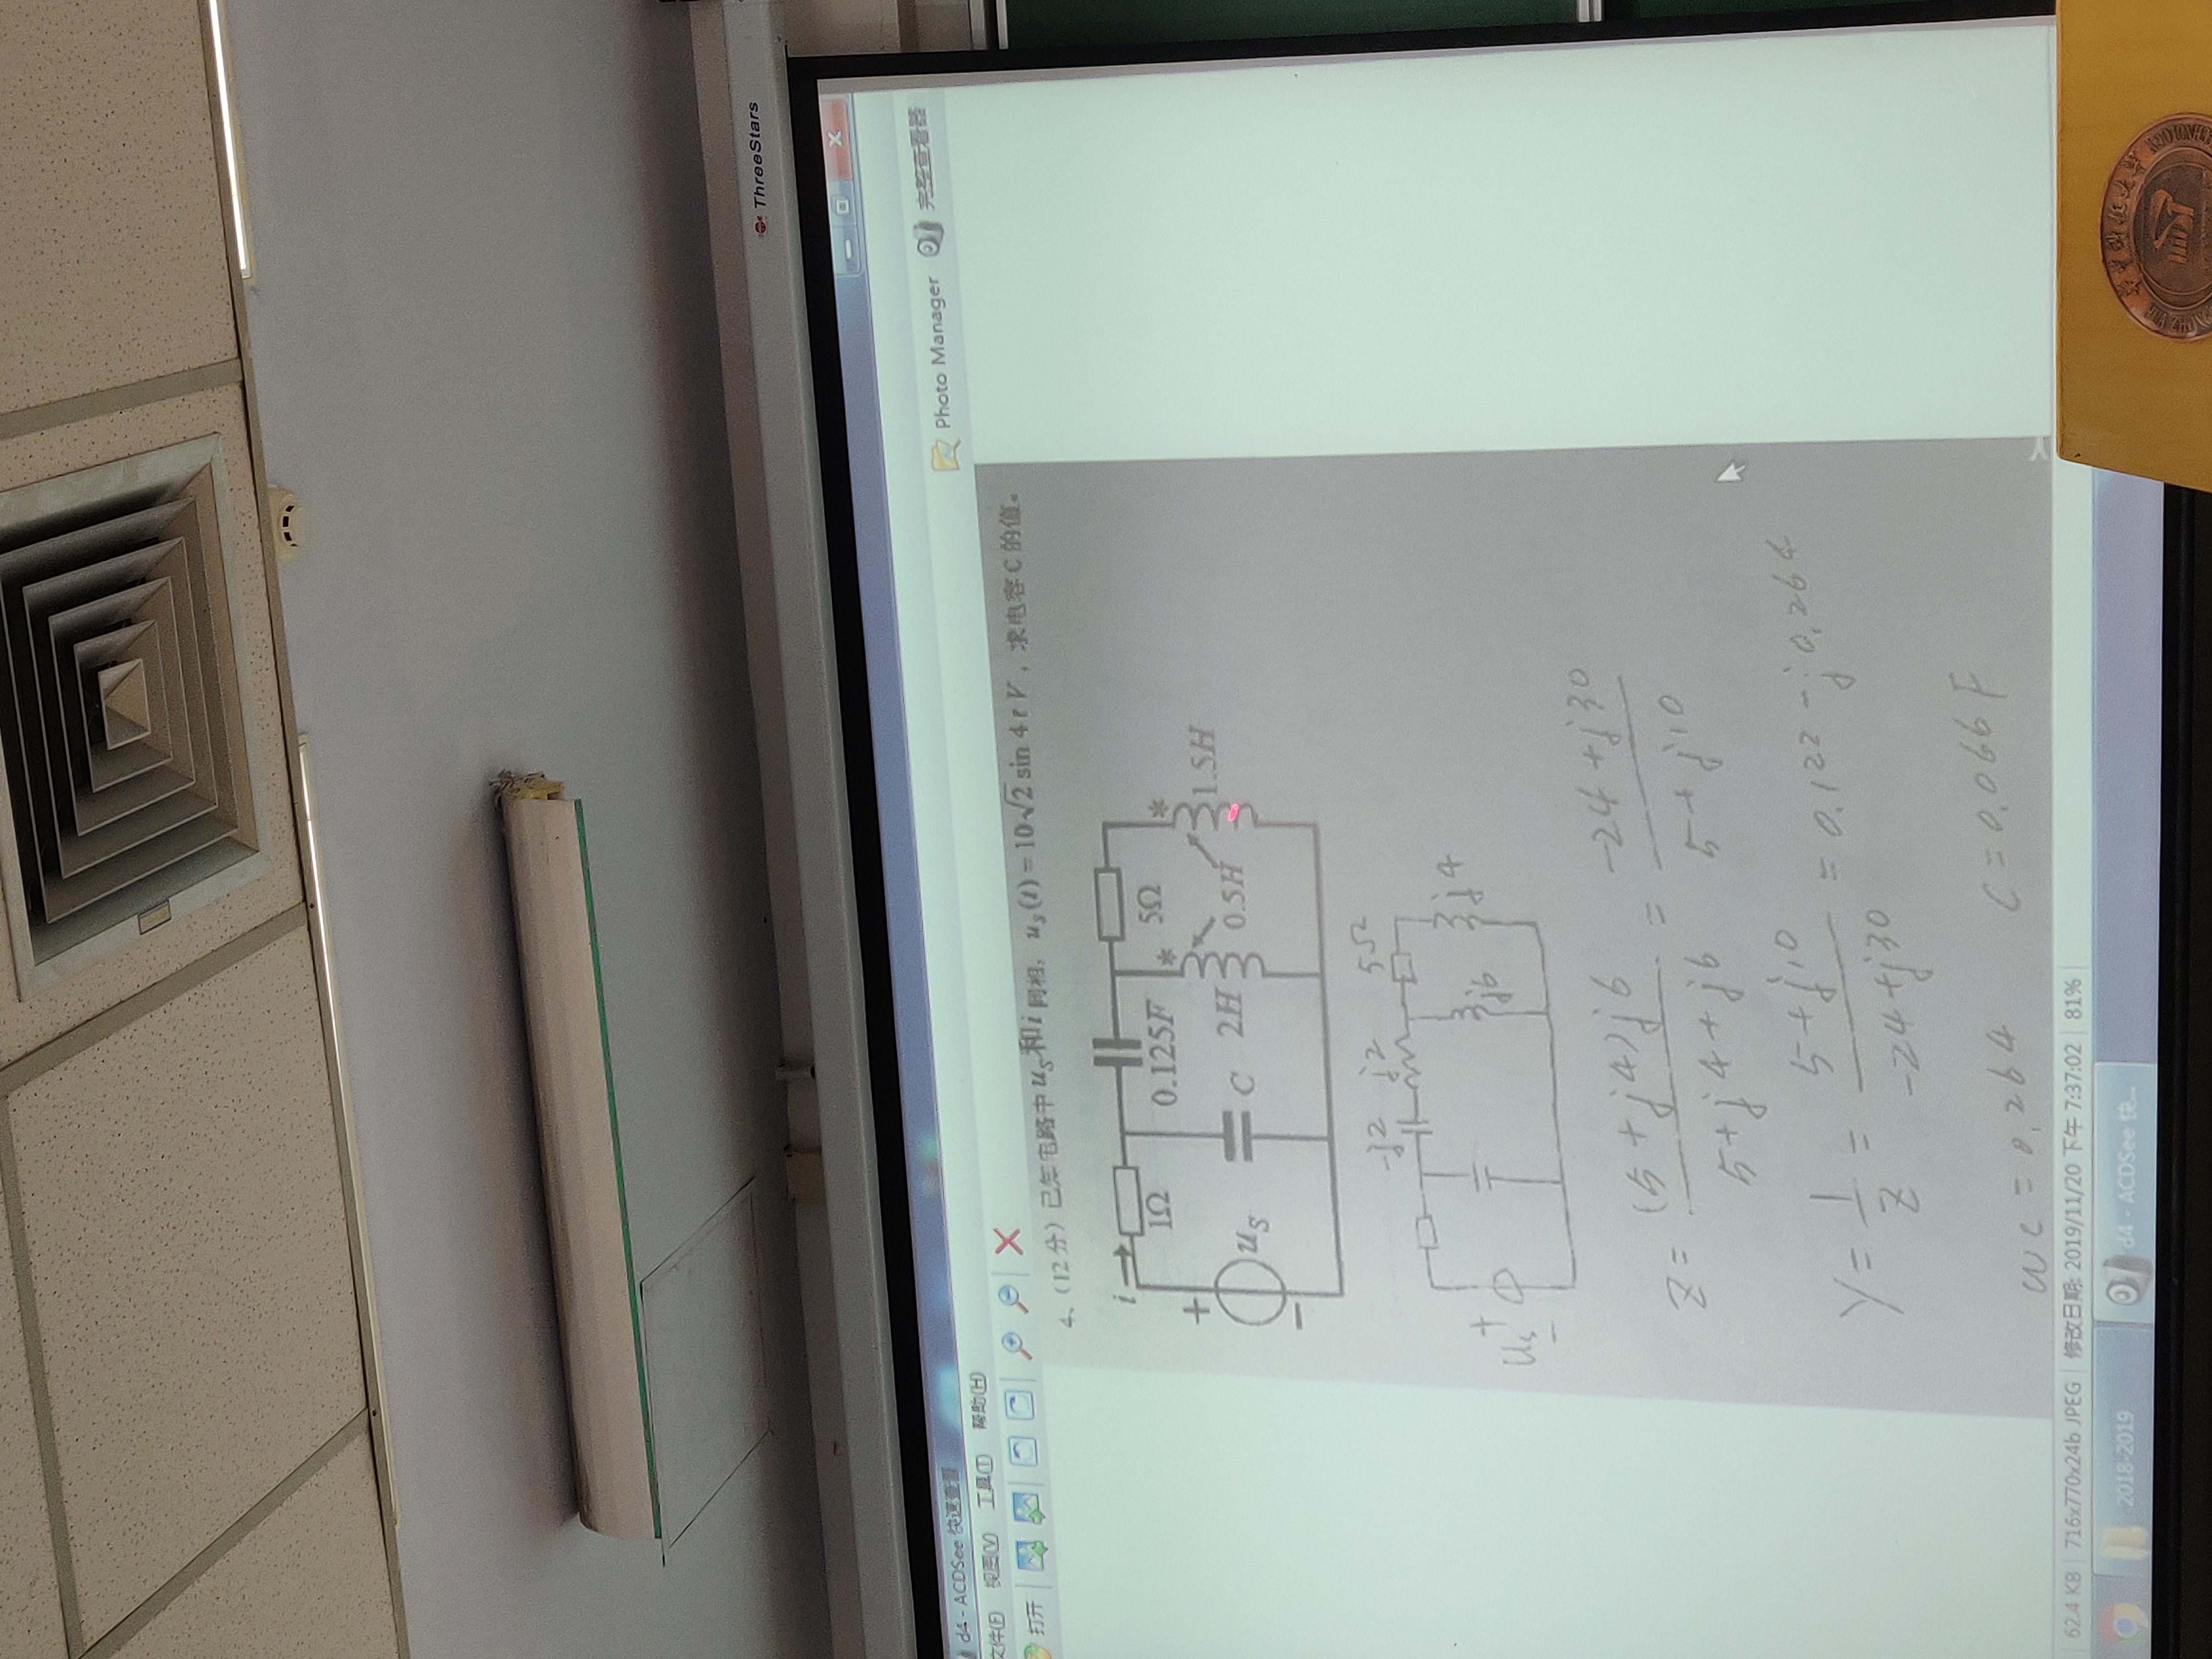 ThreeStars
d4 - ACDSee 快速查看
文件(F) 视图(V) 工具(T) 帮助(H)
Photo Manager 完整查看器
打开
4、（12分）已知电路中 u_S 和 i 同相，u_S(t) = 10√2 sin 4t V，求电容 C 的值。
i
1Ω
0.125F
5Ω
* *
+
u_S
−
C
2H
0.5H
1.5H
-j2 j2 5Ω
+
u_s
−
j6
j4
Z = (5+j4)j6 / (5+j4+j6) = (-24+j30) / (5+j10)
Y = 1/Z = (5+j10) / (-24+j30) = 0.122 - j0.264
wc = 0.264 C = 0.066 F
62.4 KB 716x770x24b JPEG 修改日期: 2019/11/20 下午 7:37:02 81%
2018-2019
d4 - ACDSee 快...